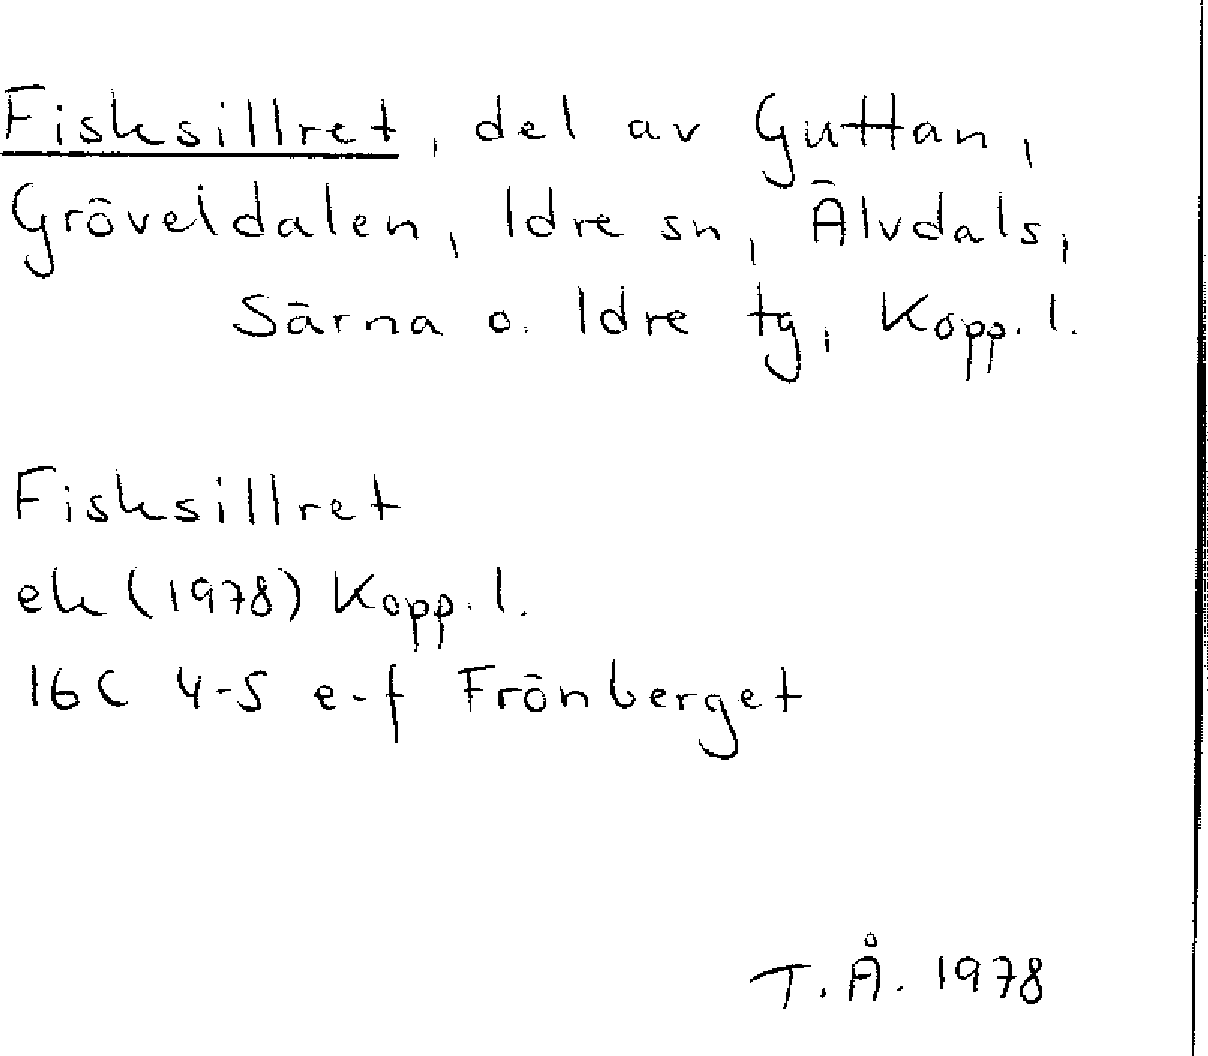 Fisksillret, del av Guttan,
Gröveldalen, Idre sn, Älvdals,
Särna o. Idre tg, Kopp. l.
Fisksillret
ek (1978) Kopp. l.
16C 4-5 e-f Frönberget
T. Å. 1978